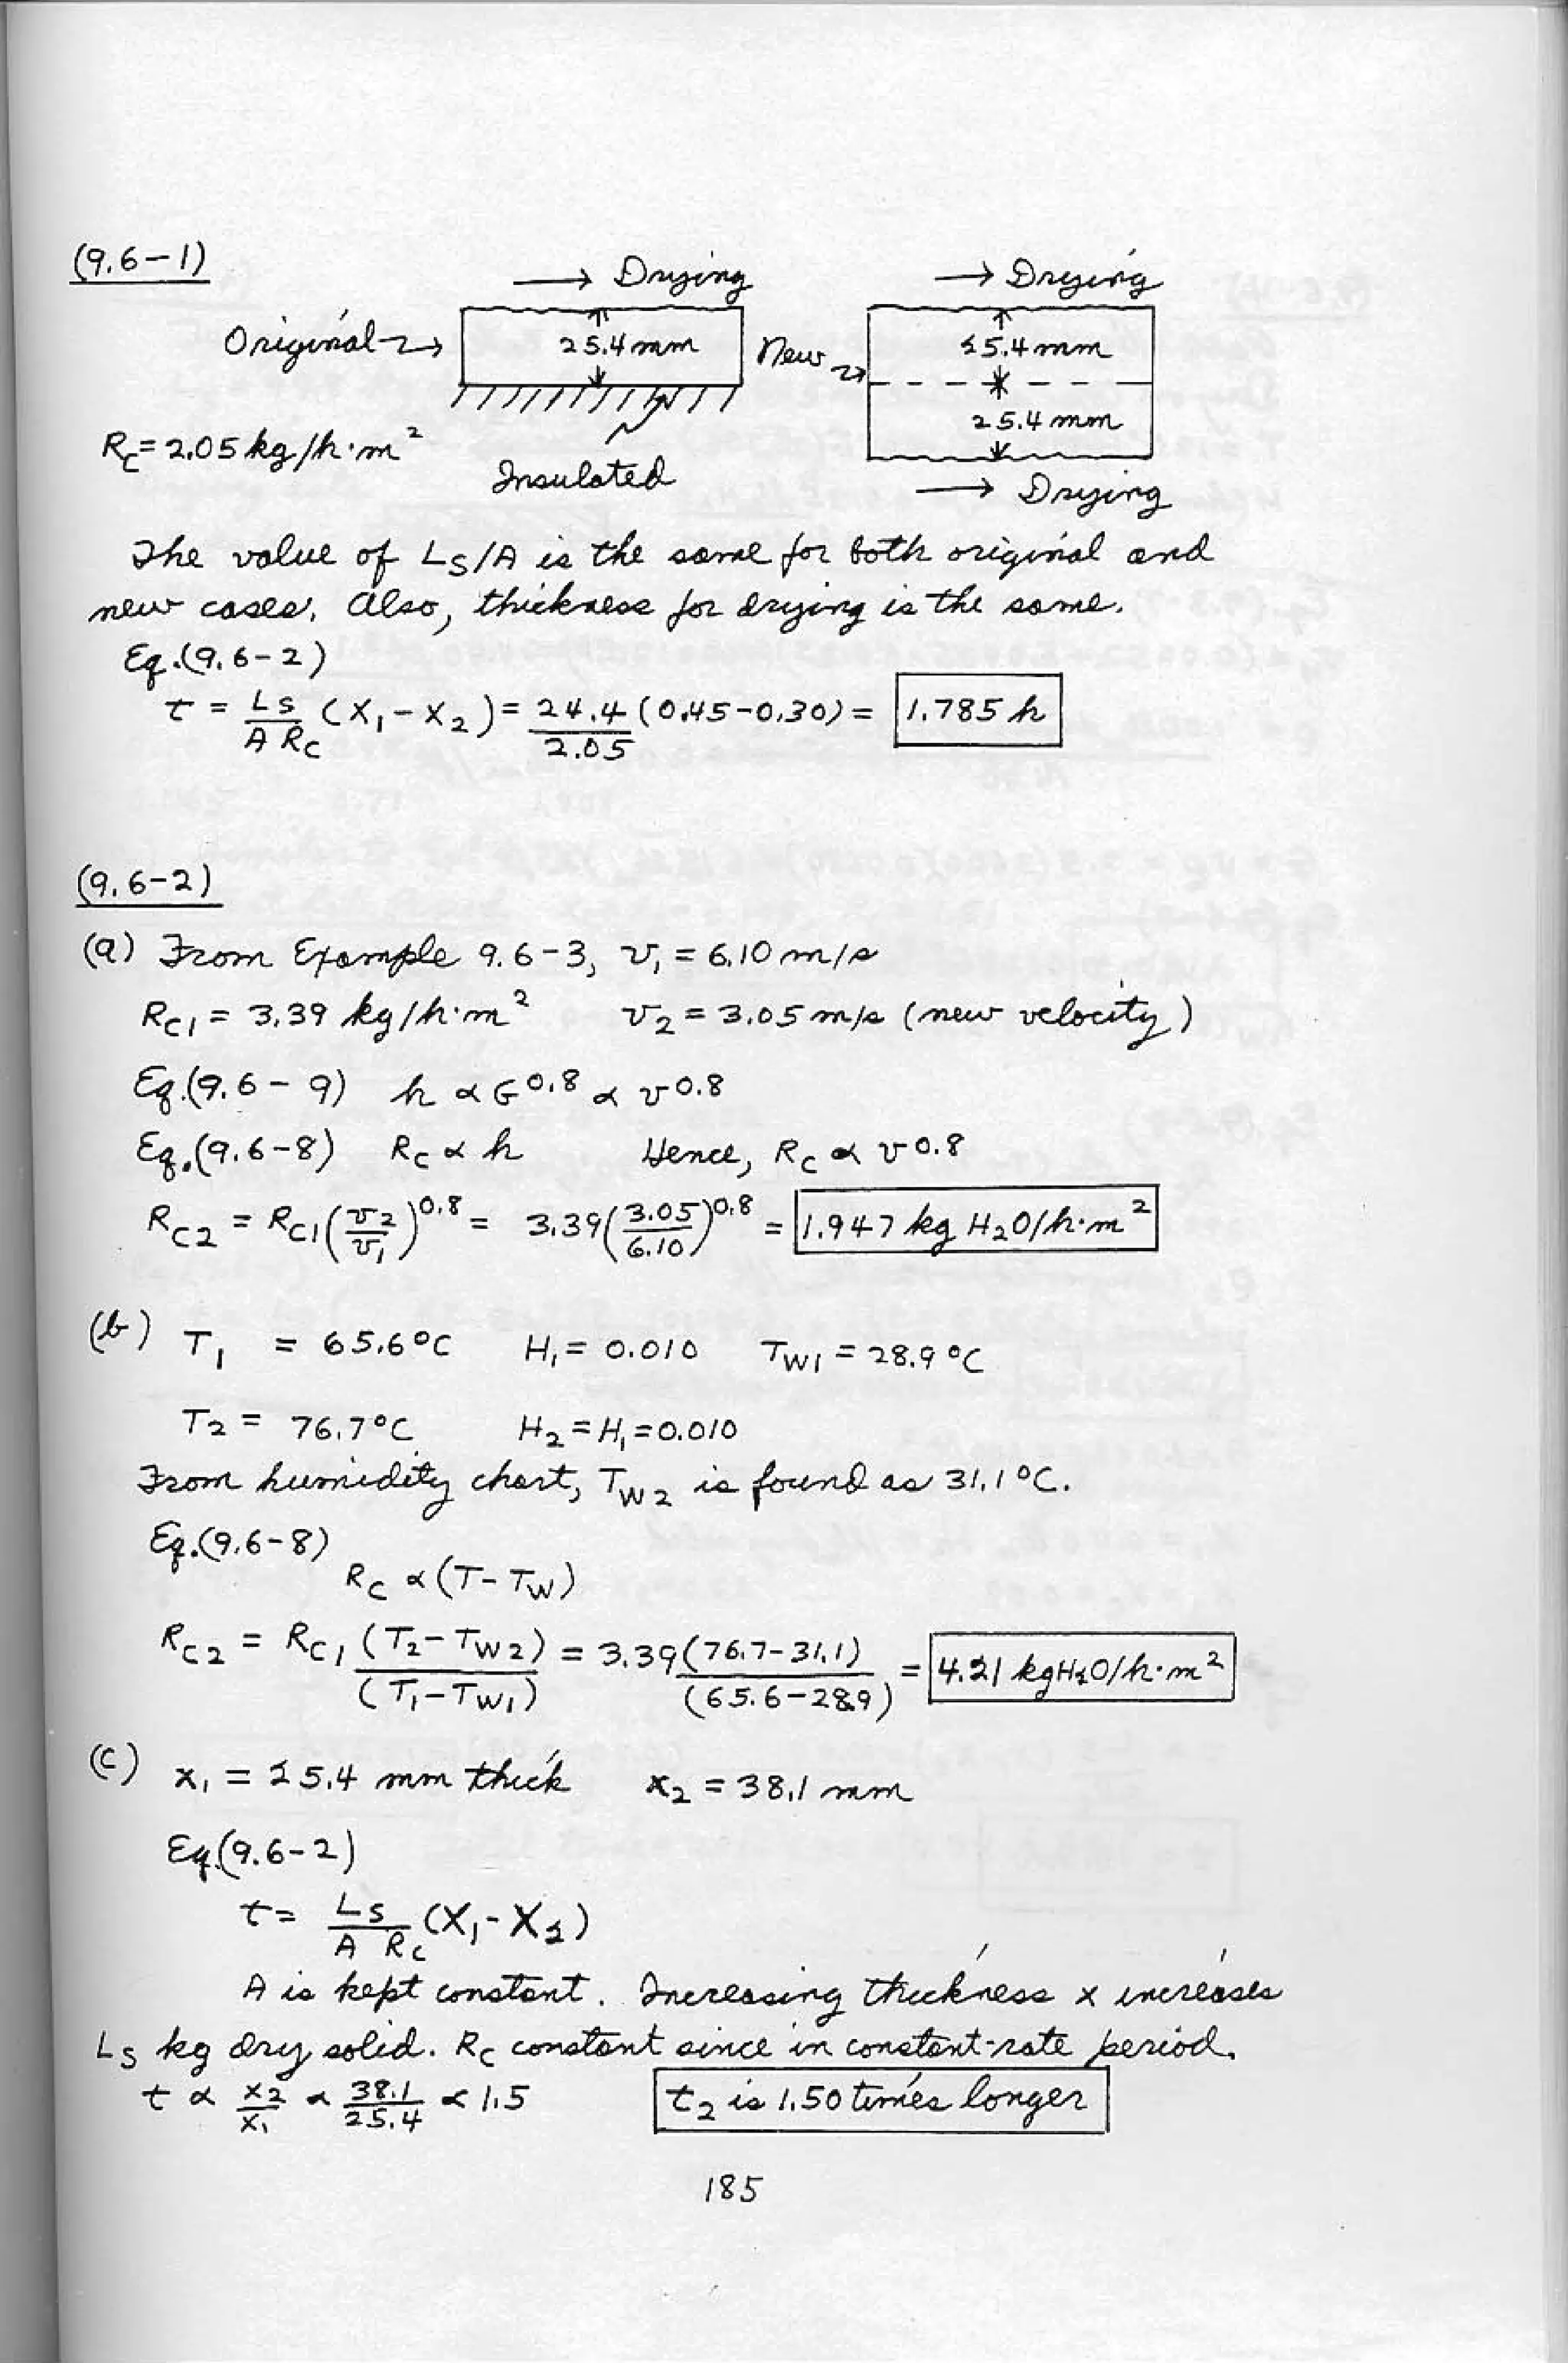 (9.6-1)
→ Drying
→ Drying
Original →
25.4 mm
New →
25.4 mm
25.4 mm
Rc = 2.05 kg/h·m²
Insulated
→ Drying
The value of Ls/A is the same for both original and
new cases. Also, thickness for drying is the same.
Eq.(9.6-2)
t = Ls/(A Rc) (X₁ - X₂) = 24.4/2.05 (0.45 - 0.30) = 1.785 h
(9.6-2)
(a) From Example 9.6-3, v₁ = 6.10 m/s
Rc1 = 3.39 kg/h·m² v₂ = 3.05 m/s (new velocity)
Eq.(9.6-9) h ∝ G^0.8 ∝ v^0.8
Eq.(9.6-8) Rc ∝ h Hence, Rc ∝ v^0.8
Rc2 = Rc1 (v₂/v₁)^0.8 = 3.39 (3.05/6.10)^0.8 = 1.947 kg H₂O/h·m²
(b) T₁ = 65.6°C H₁ = 0.010 Tw1 = 28.9°C
T₂ = 76.7°C H₂ = H₁ = 0.010
From humidity chart, Tw2 is found as 31.1°C.
Eq.(9.6-8)
Rc ∝ (T - Tw)
Rc2 = Rc1 (T₂ - Tw2)/(T₁ - Tw1) = 3.39 (76.7 - 31.1)/(65.6 - 28.9) = 4.21 kg H₂O/h·m²
(c) x₁ = 25.4 mm thick x₂ = 38.1 mm
Eq.(9.6-2)
t = Ls/(A Rc) (X₁ - X₂)
A is kept constant. Increasing thickness x increases
Ls kg dry solid. Rc constant since in constant-rate period.
t ∝ x₂/x₁ ∝ 38.1/25.4 ∝ 1.5 t₂ is 1.50 times longer
185